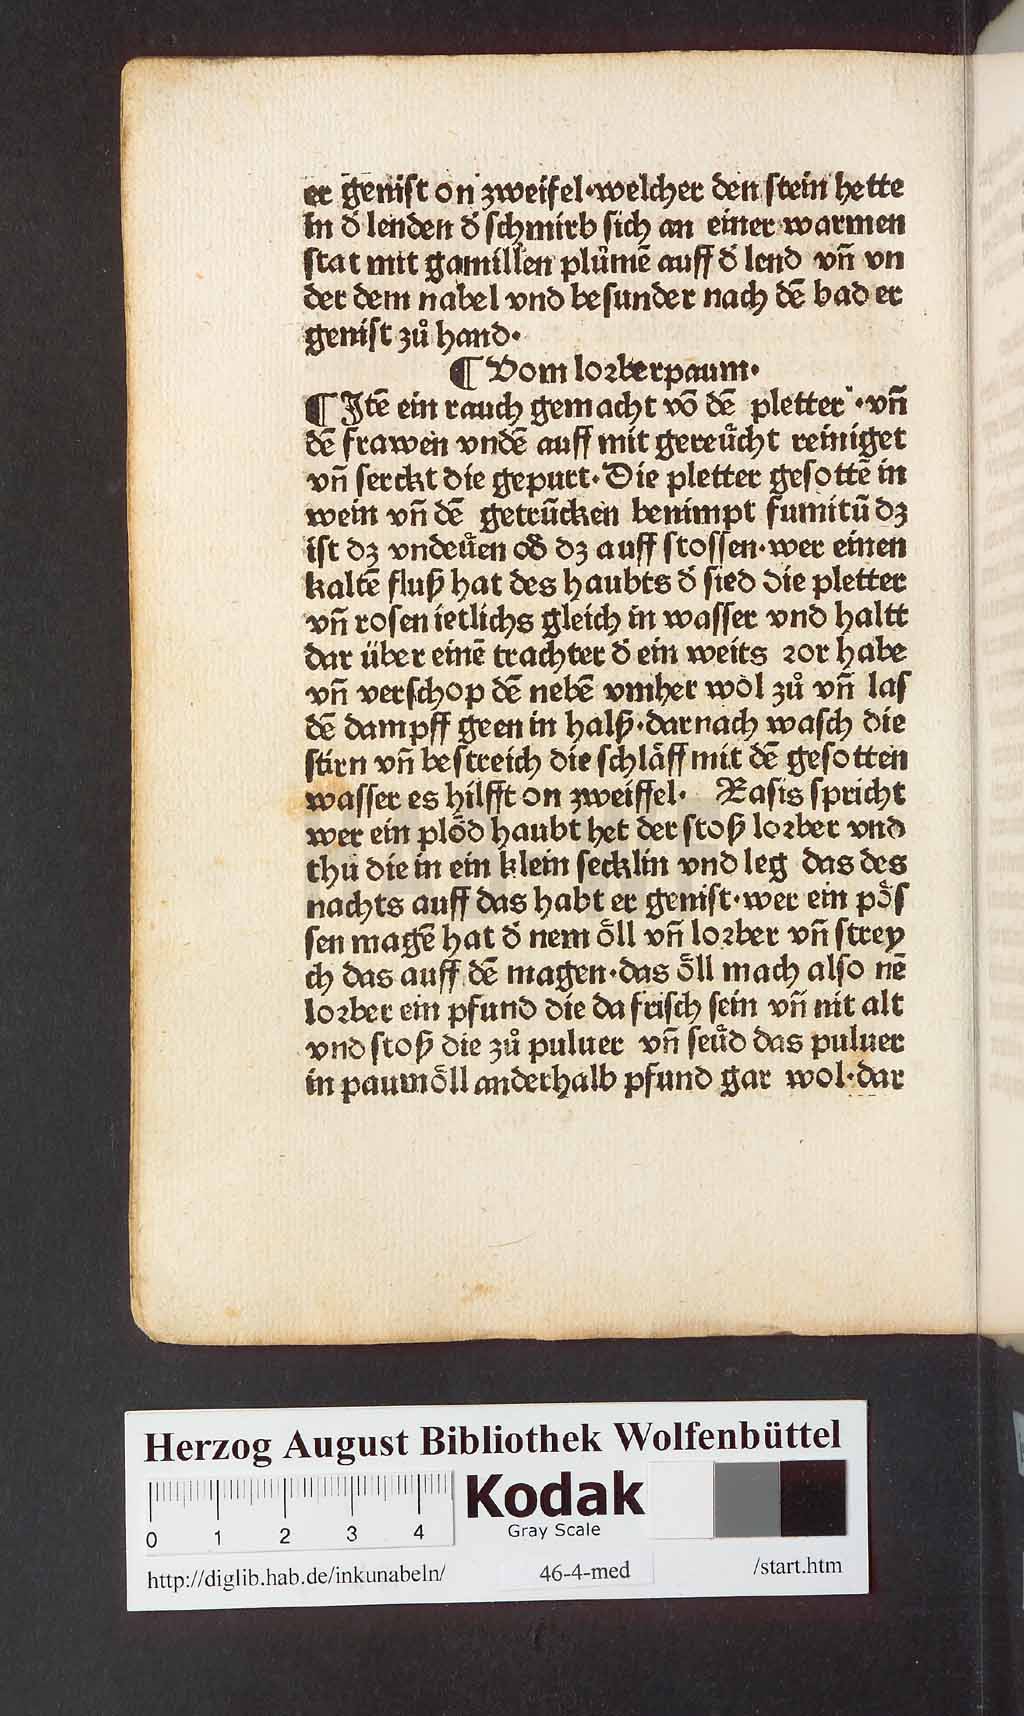 er genist on zweifel·welcher den stein hette
In d̕ lenden d̕ schmirb sich an einer warmen
stat mit gamillen plůmē auff d̕ lend vn̄ vn
der dem nabel vnd besunder nach dē bad er
genist zů hand·
¶ Vom lorberpaum·
¶ Itē ein rauch gemacht vō dē pletter·vn̄
dē frawen vndē auff mit gereuͤcht reiniget
vn̄ serckt die gepurt· Die pletter gesottē in
wein vn̄ dē getrūcken benimpt fumitū dz
ist dz vndeuͤen od̕ dz auff stossen·wer einen
kaltē fluß hat des haubts d̕ sied die pletter
vn̄ rosen ietlichs gleich in wasser vnd haltt
dar über einē trachter d̕ ein weits ror habe
vn̄ verschop dē nebē vmher wol zů vn̄ las
dē dampff geen in halß·darnach wasch die
stirn vn̄ bestreich die schlaͤff mit dē gesotten
wasser es hilfft on zweiffel· Rasis spricht
wer ein ploͤd haubt het der stoß lorber vnd
thu die in ein klein secklin vnd leg das des
nachts auff das habt er genist·wer ein poͤs
sen magē hat d̕ nem oͤll vn̄ lorber vn̄ strey
ch das auff dē magen·das oͤll mach also nē
lorber ein pfund die da frisch sein vn̄ nit alt
vnd stoß die zů puluer vn̄ seuͤd das puluer
in paumoͤll anderhalb pfund gar wol·dar
Herzog August Bibliothek Wolfenbüttel
Kodak
Gray Scale
0 1 2 3 4
http://diglib.hab.de/inkunabeln/ 46-4-med /start.htm